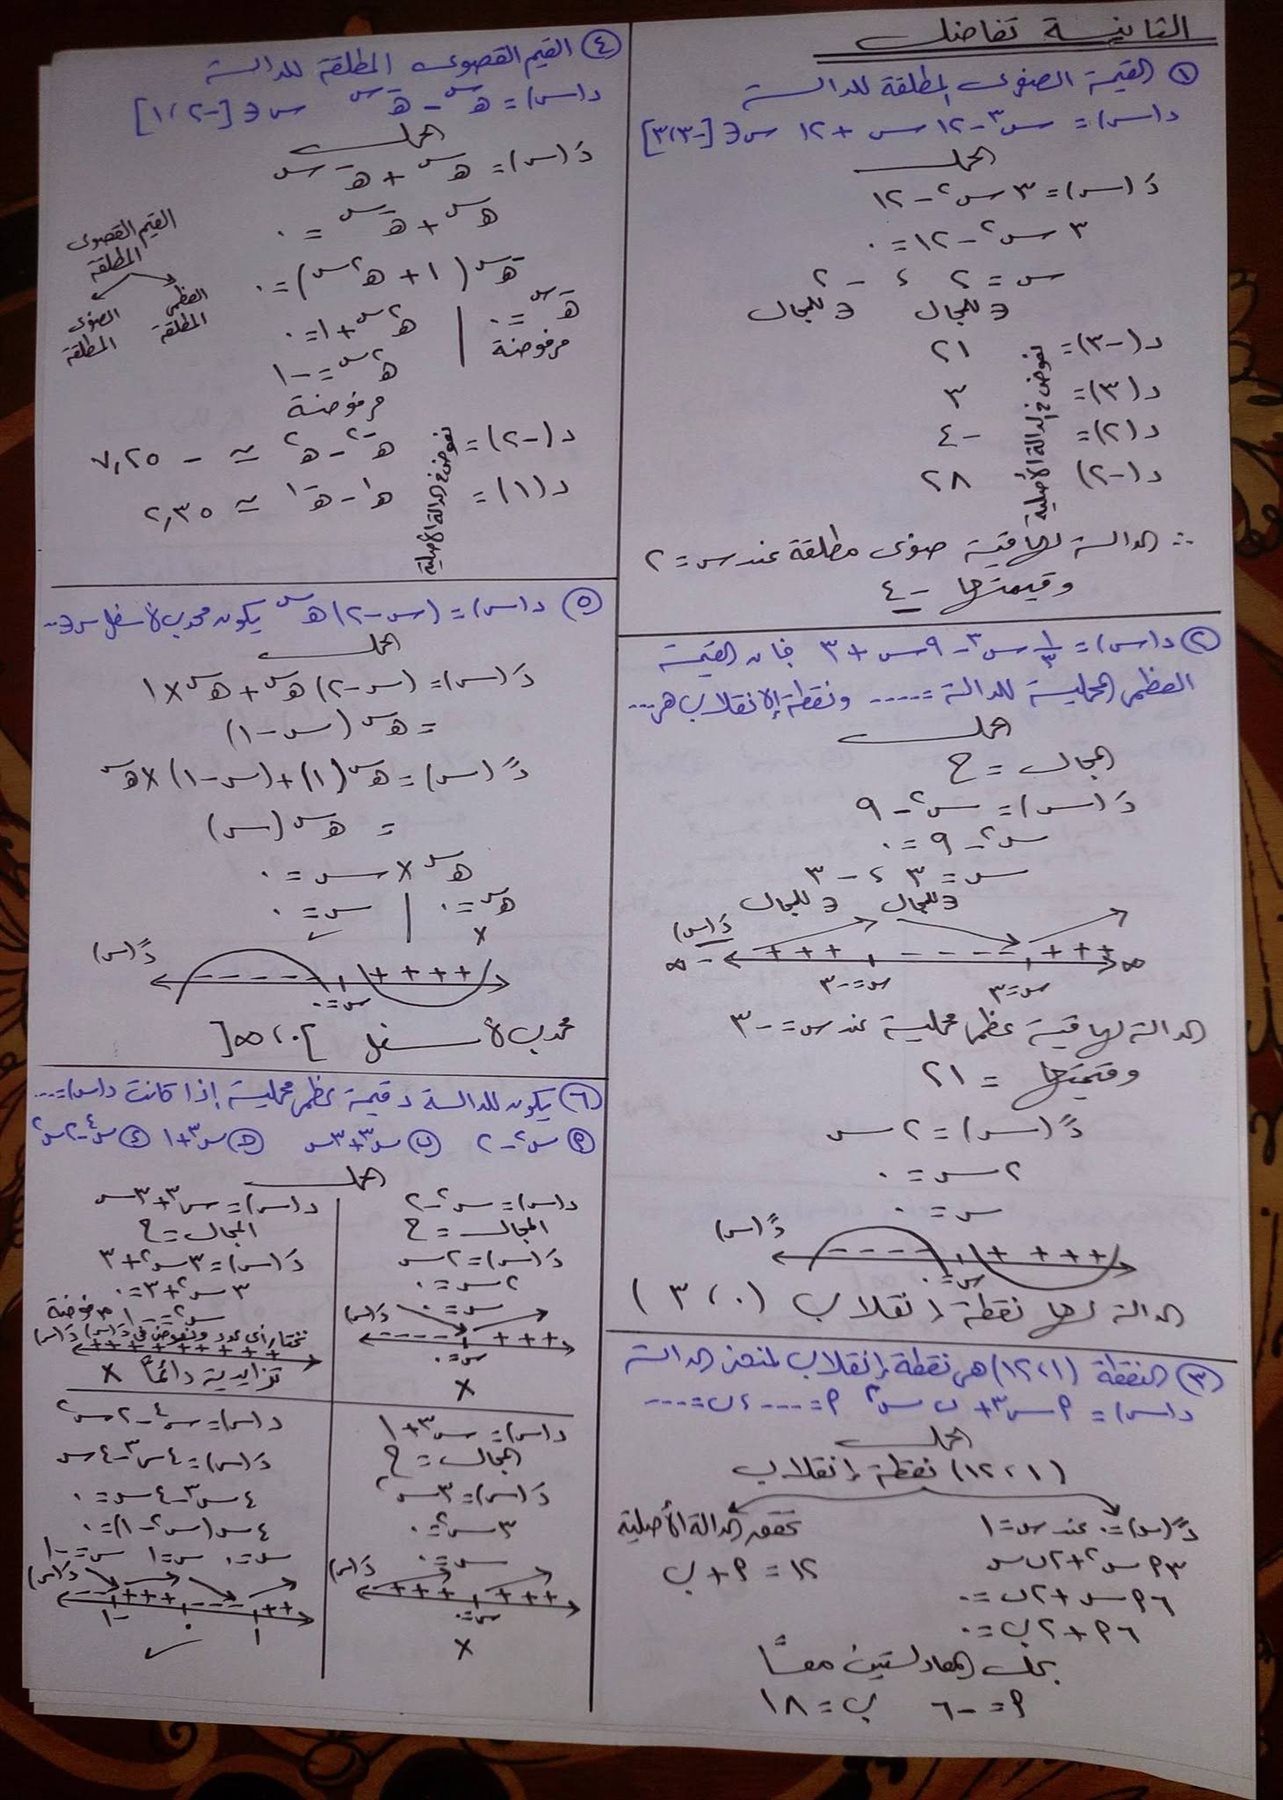 الثانية تفاضل
① القيمة الصغرى المطلقة للدالة
د(س) = س٣ - ١٢ س + ١٢ س ∈ [-٣، ٣]
الحل
دَ(س) = ٣ س٢ - ١٢
٣ س٢ - ١٢ = ٠
س = ٢ ، -٢
∈ للمجال ∈ للمجال
د(-٣) = ٢١
د(٣) = ٣
د(٢) = -٤
د(-٢) ٢٨
نعوض في الدالة الأصلية
∴ الدالة لها قيمة صغرى مطلقة عند س = ٢
وقيمتها -٤
② د(س) = ١/٣ س٣ - ٩س + ٣ فإن القيمة
العظمى المحلية للدالة = ..... ونقطة الإنقلاب هى...
الحل
المجال = ح
دَ(س) = س٢ - ٩
س٢ - ٩ = ٠
س = ٣ ، -٣
∈ للمجال ∈ للمجال
دَ(س)
-∞ + + + - - - - + + + ∞
س=-٣ س=٣
الدالة لها قيمة عظمى محلية عند س = -٣
وقيمتها = ٢١
دً(س) = ٢ س
٢ س = ٠
س = ٠
دً(س)
- - - - + + + +
س=٠
الدالة لها نقطة إنقلاب (٠، ٣)
③ النقطة (١، ١٢) هى نقطة إنقلاب لمنحنى الدالة
د(س) = ٩ س٣ + ب س٢ ٩ = .... ، ب = ....
الحل
(١، ١٢) نقطة إنقلاب
دً(س) = ٠ عند س = ١
٩٣ س٢ + ٢ ب س
٩٦ س + ٢ب = ٠
٩٦ + ٢ب = ٠
تحقق الدالة الأصلية
١٢ = ٩ + ب
بحل المعادلتين معاً
٩ = -٦ ب = ١٨
④ القيم القصوى المطلقة للدالة
د(س) = هـ^س - هـ^-س س ∈ [-٢، ١]
الحل
دَ(س) = هـ^س + هـ^-س
هـ^س + هـ^-س = ٠
هـ^-س (١ + هـ^٢س) = ٠
هـ^-س = ٠ | هـ^٢س + ١ = ٠
مرفوضة هـ^٢س = -١
مرفوضة
القيم القصوى
المطلقة
العظمى المطلقة
الصغرى المطلقة
د(-٢) = هـ^-٢ - هـ^٢ ≃ -٧,٢٥
د(١) = هـ^١ - هـ^-١ ≃ ٢,٣٥
نعوض في الدالة الأصلية
⑤ د(س) = (س - ٢) هـ^س يكون محدب لأسفل س ∈ ..
الحل
دَ(س) = (س - ٢) هـ^س + هـ^س × ١
= هـ^س (س - ١)
دً(س) = هـ^س (١) + (س - ١) × هـ^س
= هـ^س (س)
هـ^س × س = ٠
هـ^س = ٠ | س = ٠
× ✓
دً(س)
- - - - - + + + +
س=٠
محدب لأسفل ]٠، ∞[
⑥ يكون للدالة د قيمة عظمى محلية إذا كانت د(س) = ...
Ⓟ س٢ - ٢ ⓑ س٣ + ٣س ⓗ س٣ + ١ ⓓ س٤ - ٢س٢
الحل
د(س) = س٢ - ٢
المجال = ح
دَ(س) = ٢ س
٢ س = ٠
س = ٠
دَ(س)
- - - - + + +
س=٠
×
د(س) = س٣ + ٣س
المجال = ح
دَ(س) = ٣ س٢ + ٣
٣ س٢ + ٣ = ٠
س٢ = -١ مرفوضة
نختار أى عدد ونعوض فى دَ(س)
دَ(س) + + + + + + + + +
تزايدية دائماً ×
د(س) = س٣ + ١
المجال = ح
دَ(س) = ٣ س٢
٣ س٢ = ٠
س = ٠
دَ(س)
+ + + + + + +
س=٠
×
د(س) = س٤ - ٢ س٢
دَ(س) = ٤س٣ - ٤ س
٤ س٣ - ٤ س = ٠
٤ س (س٢ - ١) = ٠
س = ٠ س = ١ س = -١
دَ(س)
- - + + + - - - + +
-١ ٠ ١
✓